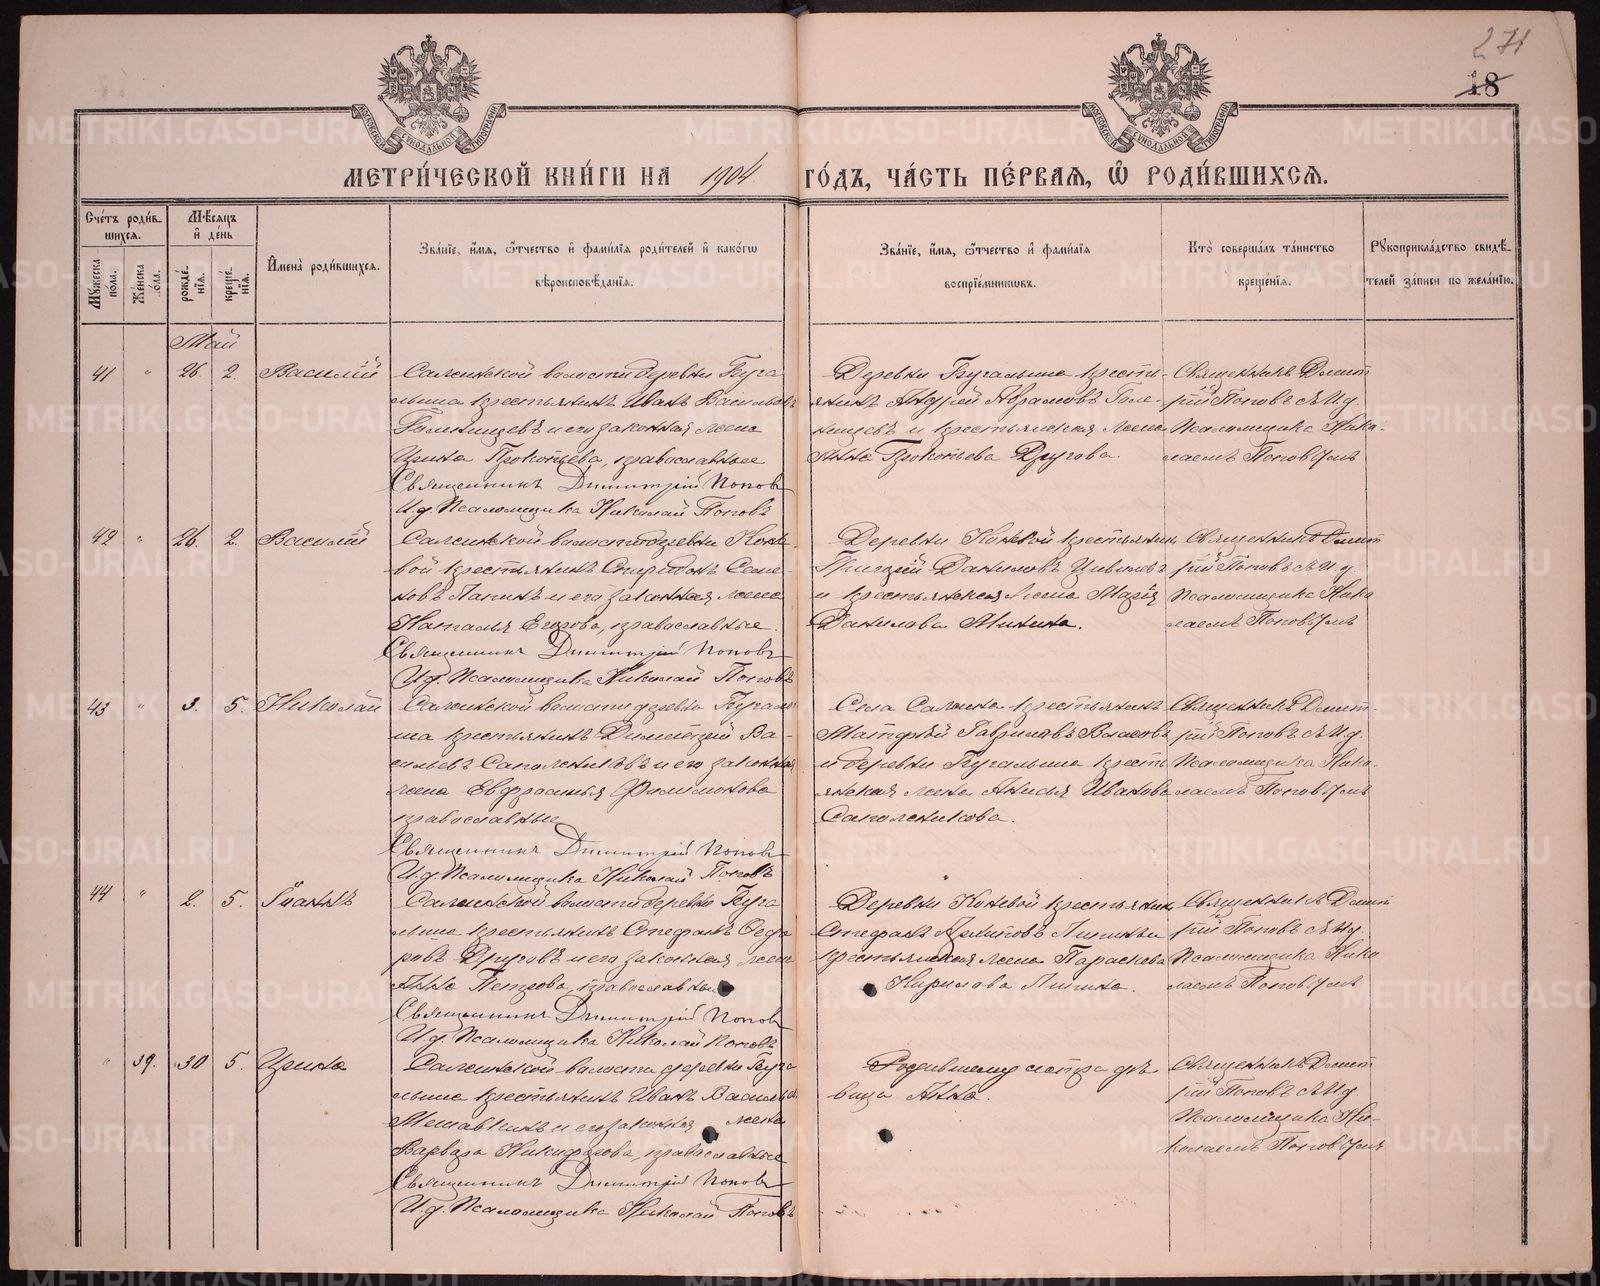 271
18
МЕТРИ́ЧЕСКОЙ КНИ́ГИ НА 1904 ГО́ДЪ, ЧА́СТЬ ПЕ́РВАЯ, Ѡ РОДИ́ВШИХСЯ.
Сче́тъ роди́вшихся.
Му́жеска по́ла.
Же́нска по́ла.
Мѣ́сяцъ и́ де́нь
рожде́нїя.
креще́нїя.
И́мена̀ роди́вшихся.
Зва́нїе, и́мя, ѻ́тчество и́ фами́лїя роди́телей и́ како́гѡ вѣроисповѣ́данїя.
Зва́нїе, и́мя, ѻ́тчество и́ фами́лїя воспрїе́мниковъ.
Кто̀ соверша́лъ та́инство креще́нїя.
Рꙋкоприкла́дство свидѣ́телей за́писи по жела́нїю.
Май
41 " 26 2 Василій
Сажинской волости деревни Буга
лыша крестьянинъ Иванъ Васильевъ
Голенищевъ и его законная жена
Ирина Прокопьева, православные
Священникъ Димитрій Поповъ
И.д. Псаломщика Николай Поповъ
Деревни Бугалыша крестья-
янинъ Андрей Абрамовъ Голе-
нищевъ и крестьянская жена
Анна Прокопьева Другова.
Священникъ Димит
рій Поповъ съ И.д.
Псаломщика Нико-
лаемъ Поповымъ
42 " 26. 2. Василій
Сажинской волости деревни Коне
вой крестьянинъ Спиридонъ Семе-
новъ Лапинъ и его законная жена
Наталья Егорова, православные.
Священникъ Димитрій Поповъ
И.д. Псаломщика Николай Поповъ
Деревни Коневой крестьянинъ
Григорій Даниловъ
и крестьянская жена Марія
Данилова Минина.
Священникъ Димит
рій Поповъ съ И.д.
Псаломщика Нико
лаемъ Поповымъ
43 " 3. 5. Николай
Сажинской волости деревни Бугалы
ша крестьянинъ Димитрій Ва-
сильевъ Сапожниковъ и его законная
жена Евфросинья Филимонова
православные
Священникъ Димитрій Поповъ
И.д. Псаломщика Николай Поповъ
Села Сажина крестьянинъ
Матфѣй Гавриловъ Власовъ
и деревни Бугалыша кресть
янская жена Анисья Иванова
Сапожникова.
Священникъ Димит-
рій Поповъ съ И.д.
Псаломщика Нико-
лаемъ Поповымъ
44 " 2. 5. Іоаннъ
Сажинской волости деревни Буга
лыша крестьянинъ Стефанъ Ѳедо
ровъ Друговъ и его законная жена
Анна Петрова, православные
Священникъ Димитрій Поповъ
И.д. Псаломщика Николай Поповъ
Деревни Коневой крестьянинъ
Стефанъ
крестьянская жена Параскева
Кирилова
Священникъ Димит
рій Поповъ съ И.д.
Псаломщика Нико
лаемъ Поповымъ
" 39. 30 5. Ирина
Сажинской волости деревни Буга
лыша крестьянинъ Иванъ Васильевъ
и его законная жена
Варвара Никифорова, православные
Священникъ Димитрій Поповъ
И.д. Псаломщика Николай Поповъ
Родившему сестра дѣ
вица Анна.
Священникъ Димит
рій Поповъ съ И.д.
Псаломщика Ни-
колаемъ Поповымъ
METRIKI.GASO-URAL.RU